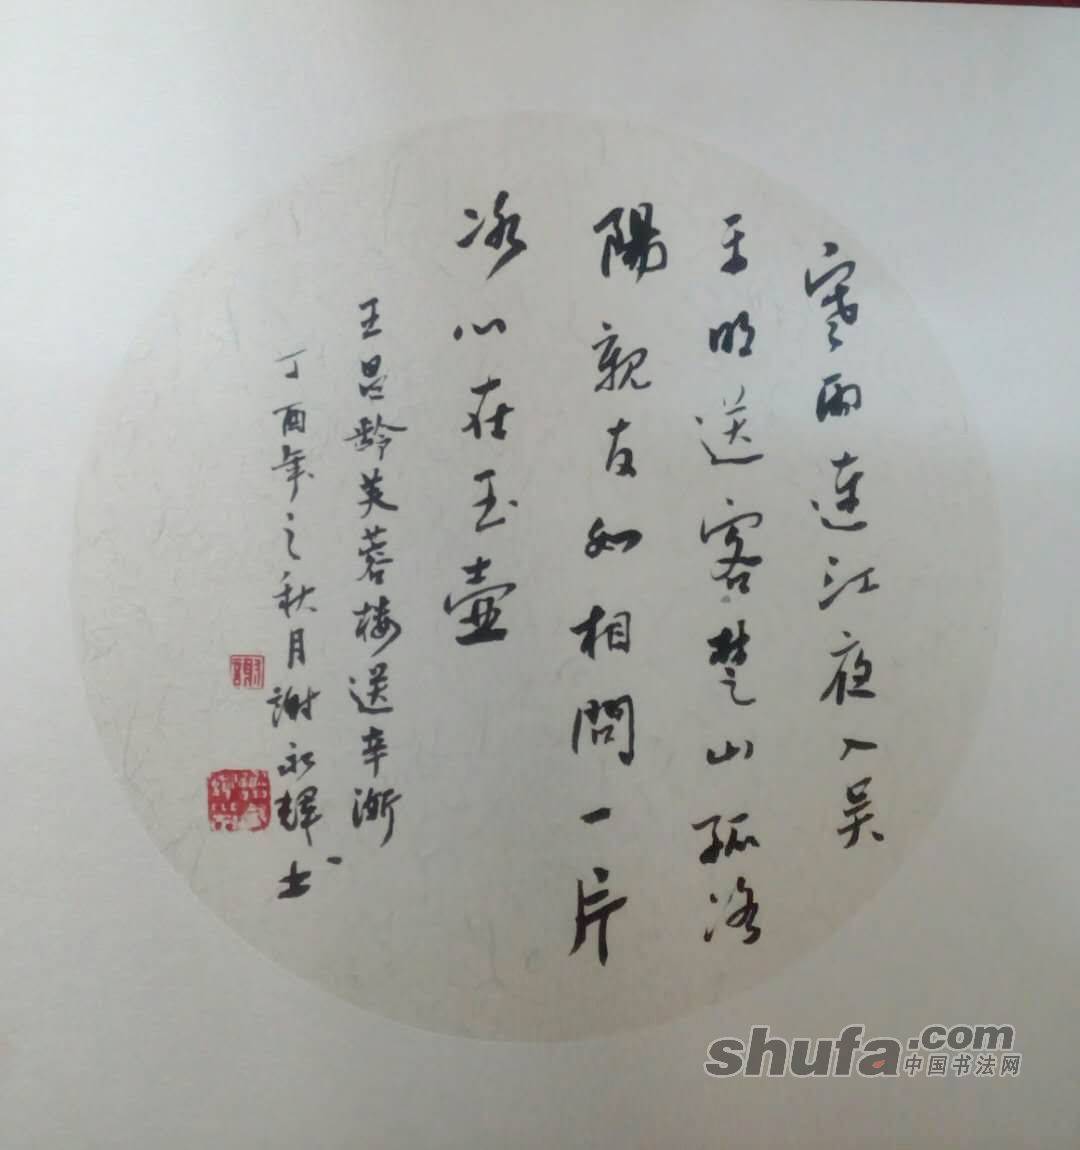 寒雨連江夜入吴
平明送客楚山孤洛
陽親友如相問一片
冰心在玉壺
王昌齡芙蓉楼送辛渐
丁酉年之秋月謝永輝书
謝
shufa.com
中国书法网